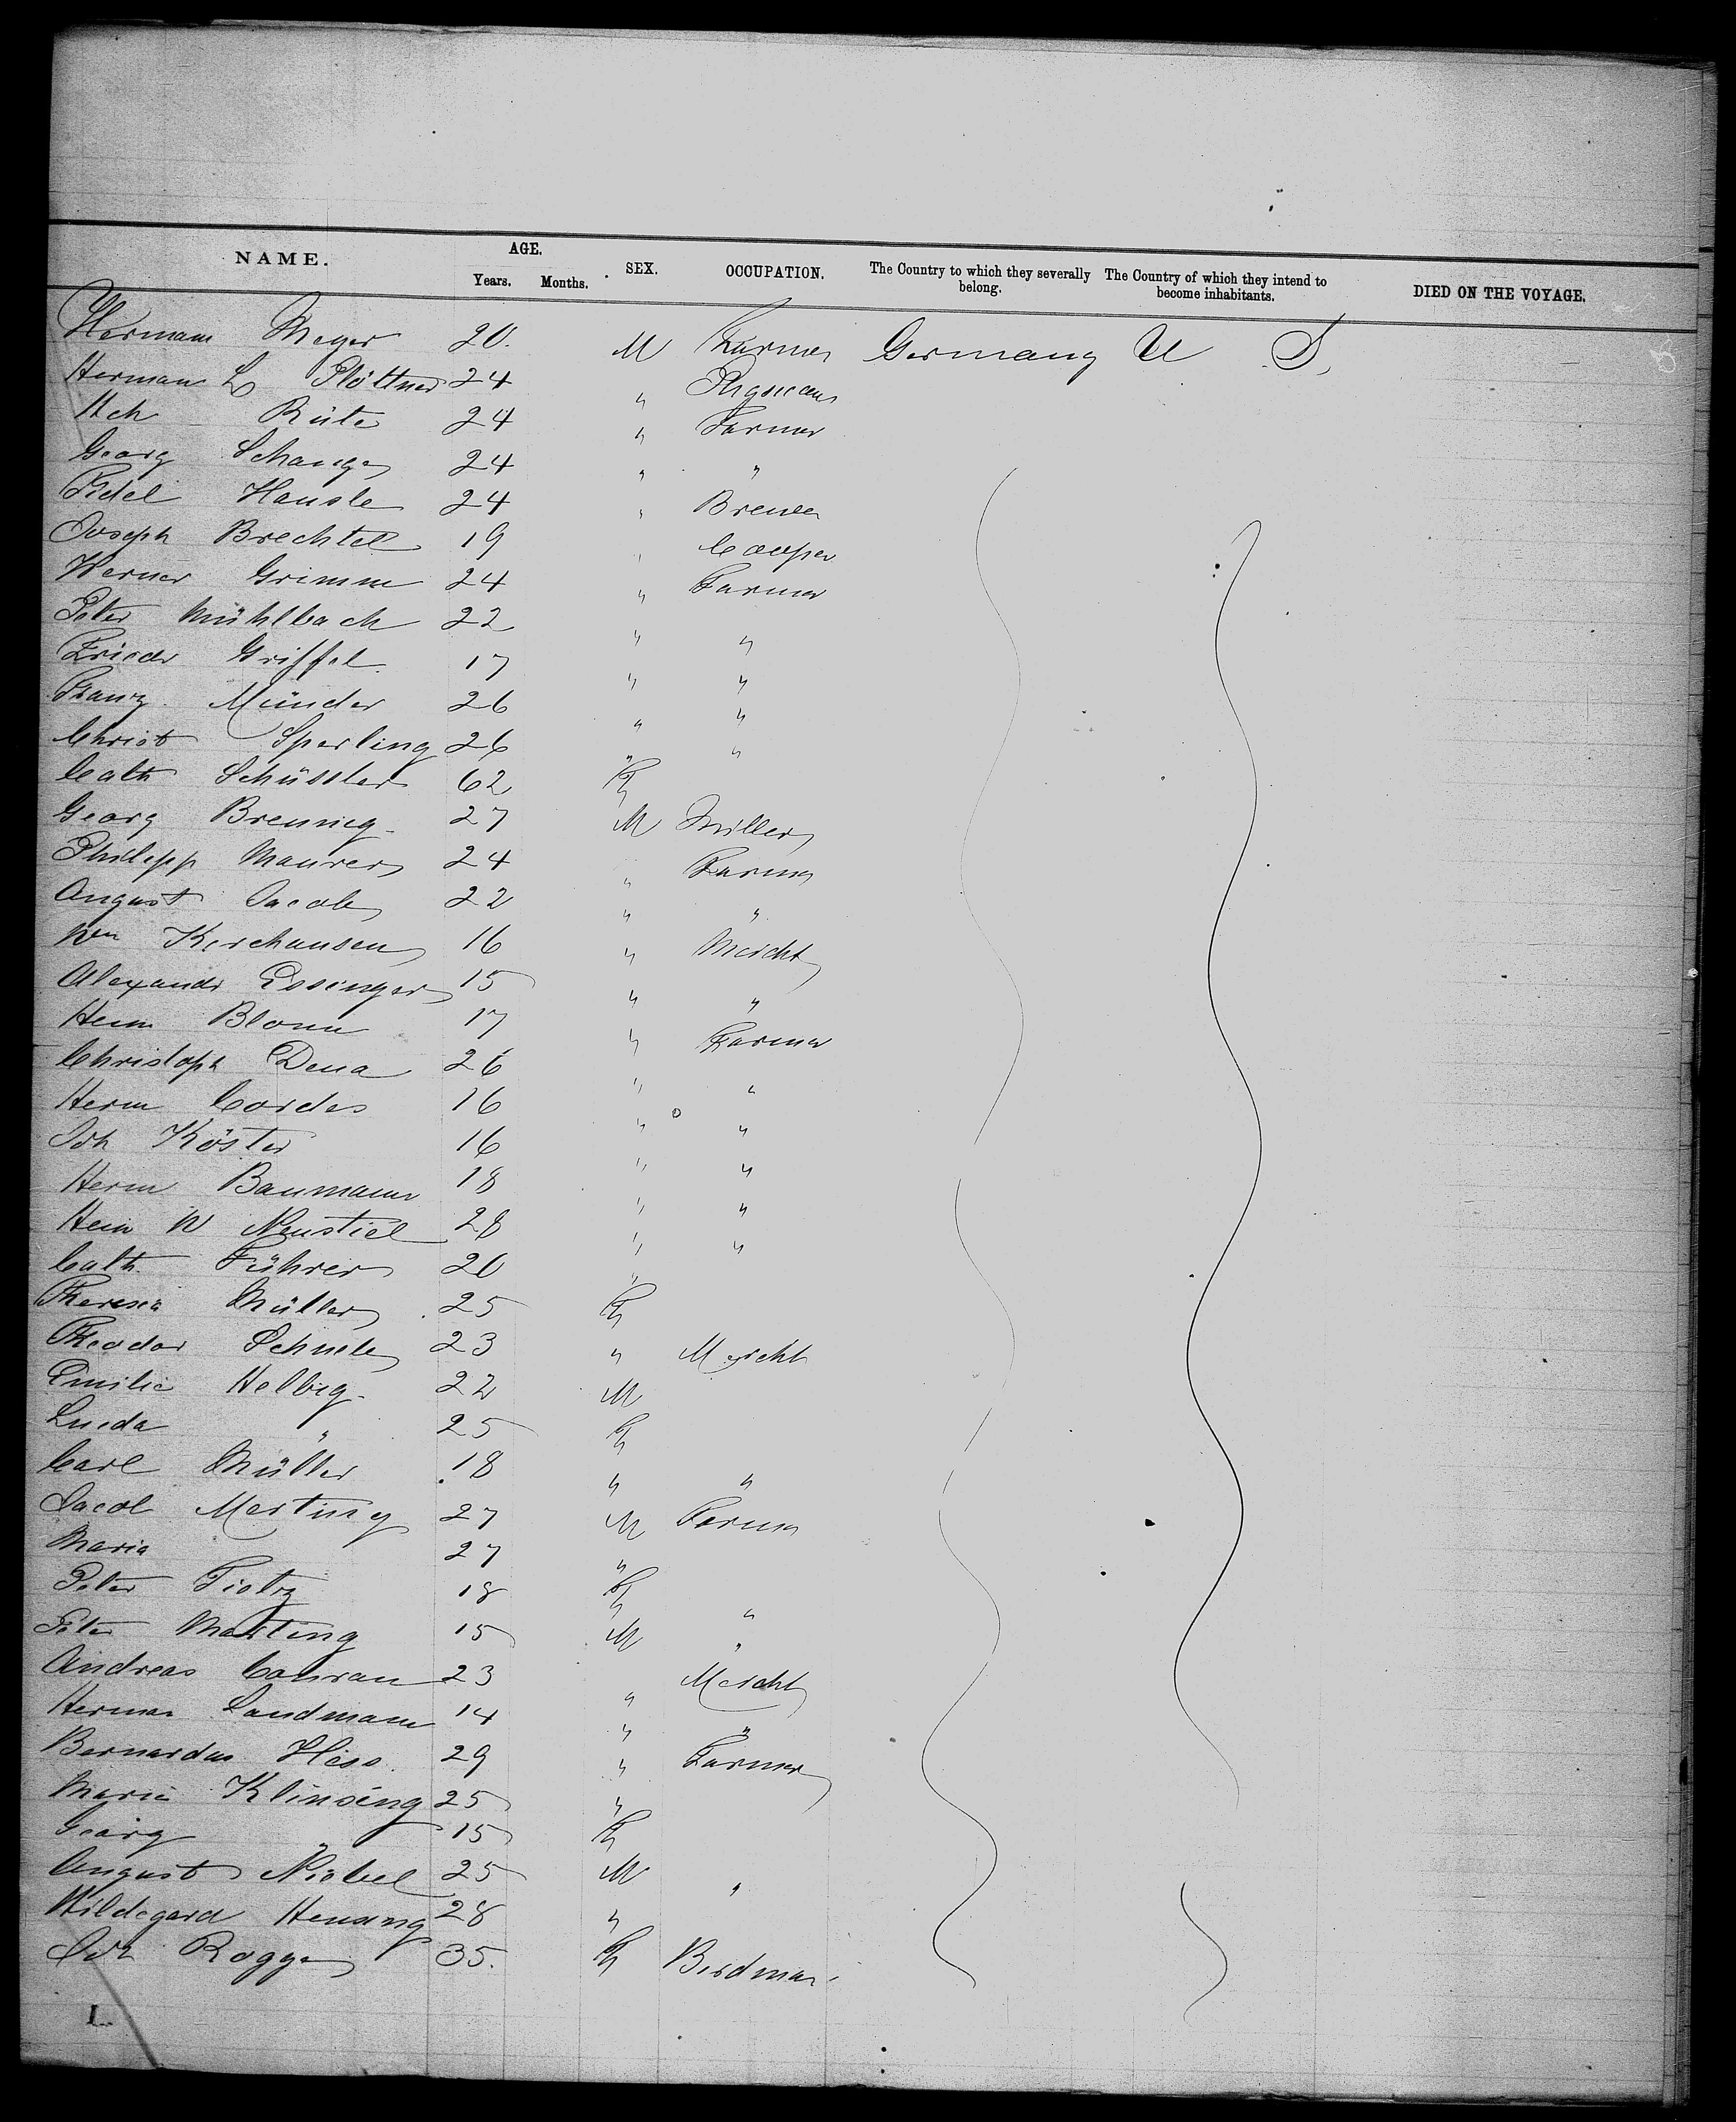 NAME. AGE. SEX. OCCUPATION. The Country to which they severally belong. The Country of which they intend to become inhabitants. DIED ON THE VOYAGE.
Years. Months.
Hermann Meyer 20. M Farmer Germany U S,
Herman L Plöttner 24 " Physician
Hch Rüte 24 " Farmer
Georg Schange 24 " "
Fidel Hausle 24 " Brewer
Joseph Brechtel 19 " Cooper
Werner Grimm 24 " Farmer
Peter Mühlbach 22 " "
Friedr Griffel 17 " "
Franz Münder 26 " "
Christ Sperling 26 " "
Cath Schüssler 62 F
Georg Brennig 27 M Miller
Philipp Maurer 24 " Farmer
August Jacob 22 " "
Wm Kirchausen 16 " Mercht
Alexandr Essinger 15 " "
Hein Blome 17 " Farmer
Christoph Dena 26 " "
Herm Cordes 16 " "
Joh Köster 16 " "
Herm Baumann 18 " "
Hein W Neustiel 28 " "
Cath Führer 20 "
Theresia Müller 25 F
Theodor Schuele 23 " Mercht
Emilie Helbig 22 M
Lueda " 25 F
Carl Müller 18 " "
Jacob Merting 27 M Farmer
Maria 27 "
Peter Tietz 18 F "
Peter Merting 15 M "
Andreas Conran 23 Mercht
Herman Landmann 14 " "
Bernardus Hess 29 " Farmer
Maria Klinsing 25 "
Georg " 15 F
August Niebel 25 M "
Hildegard Hensing 28 "
Joh Rogge 35. F Birdman
L